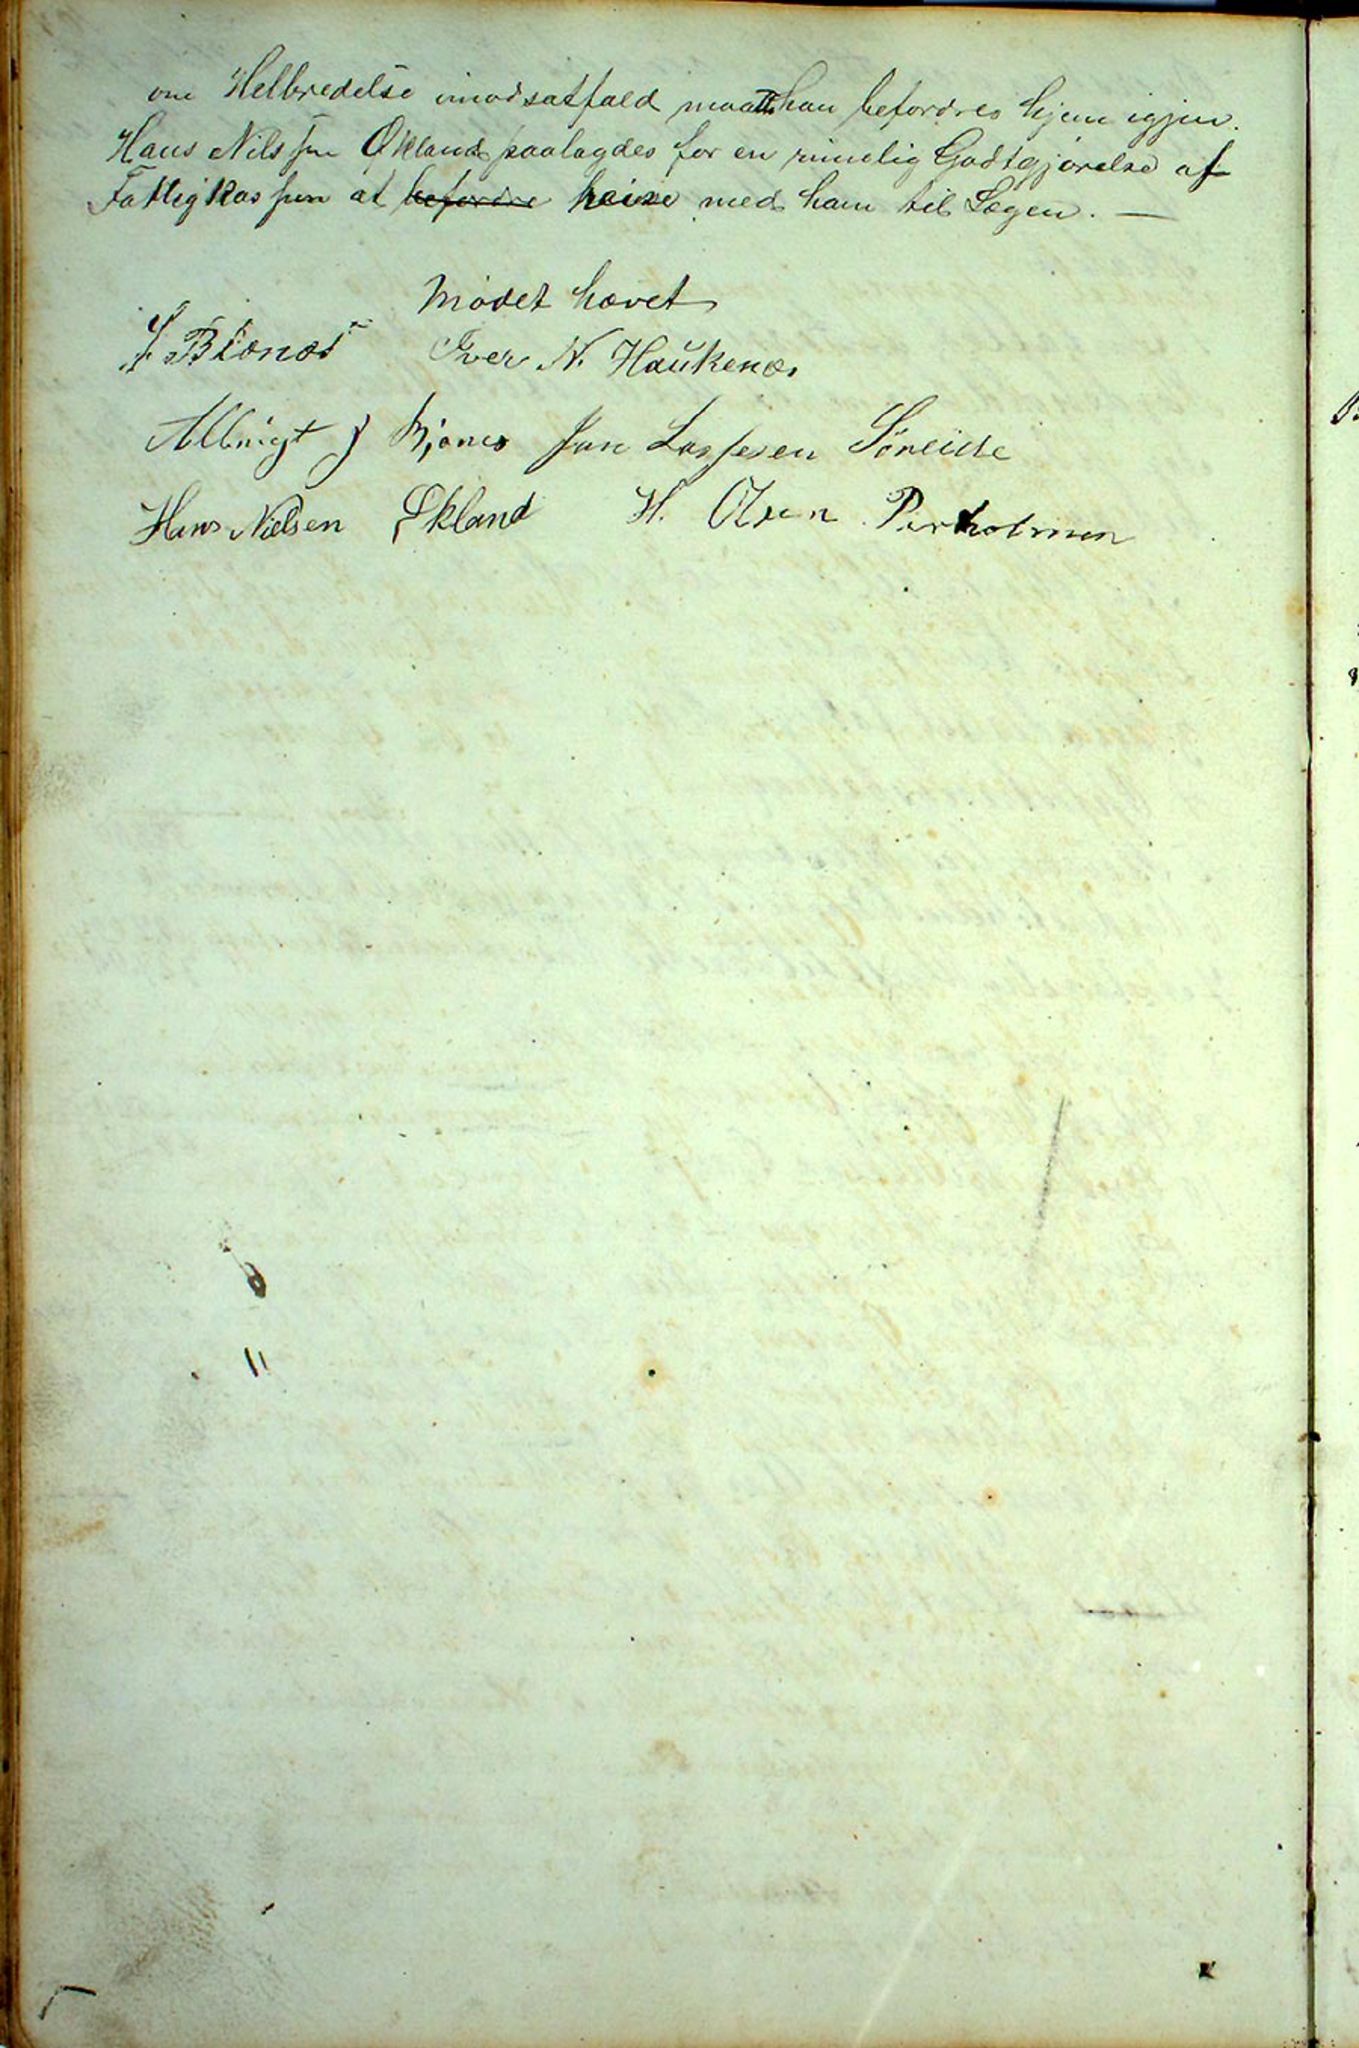 om Helbredelse imodsatfald maatte han befordres hjem igjen.
Hans Nilssen Økland paalagdes for en rimelig Godtgjørelse af
Fattigkassen at befordre reise med ham til Lægen. —
Mødet hævet
J. Bienæs Iver N. Haukenæs
Albrigt J Bjones Jan Lassesen Søreide
Hans Nielsen Økland H. Olsen Porholmen